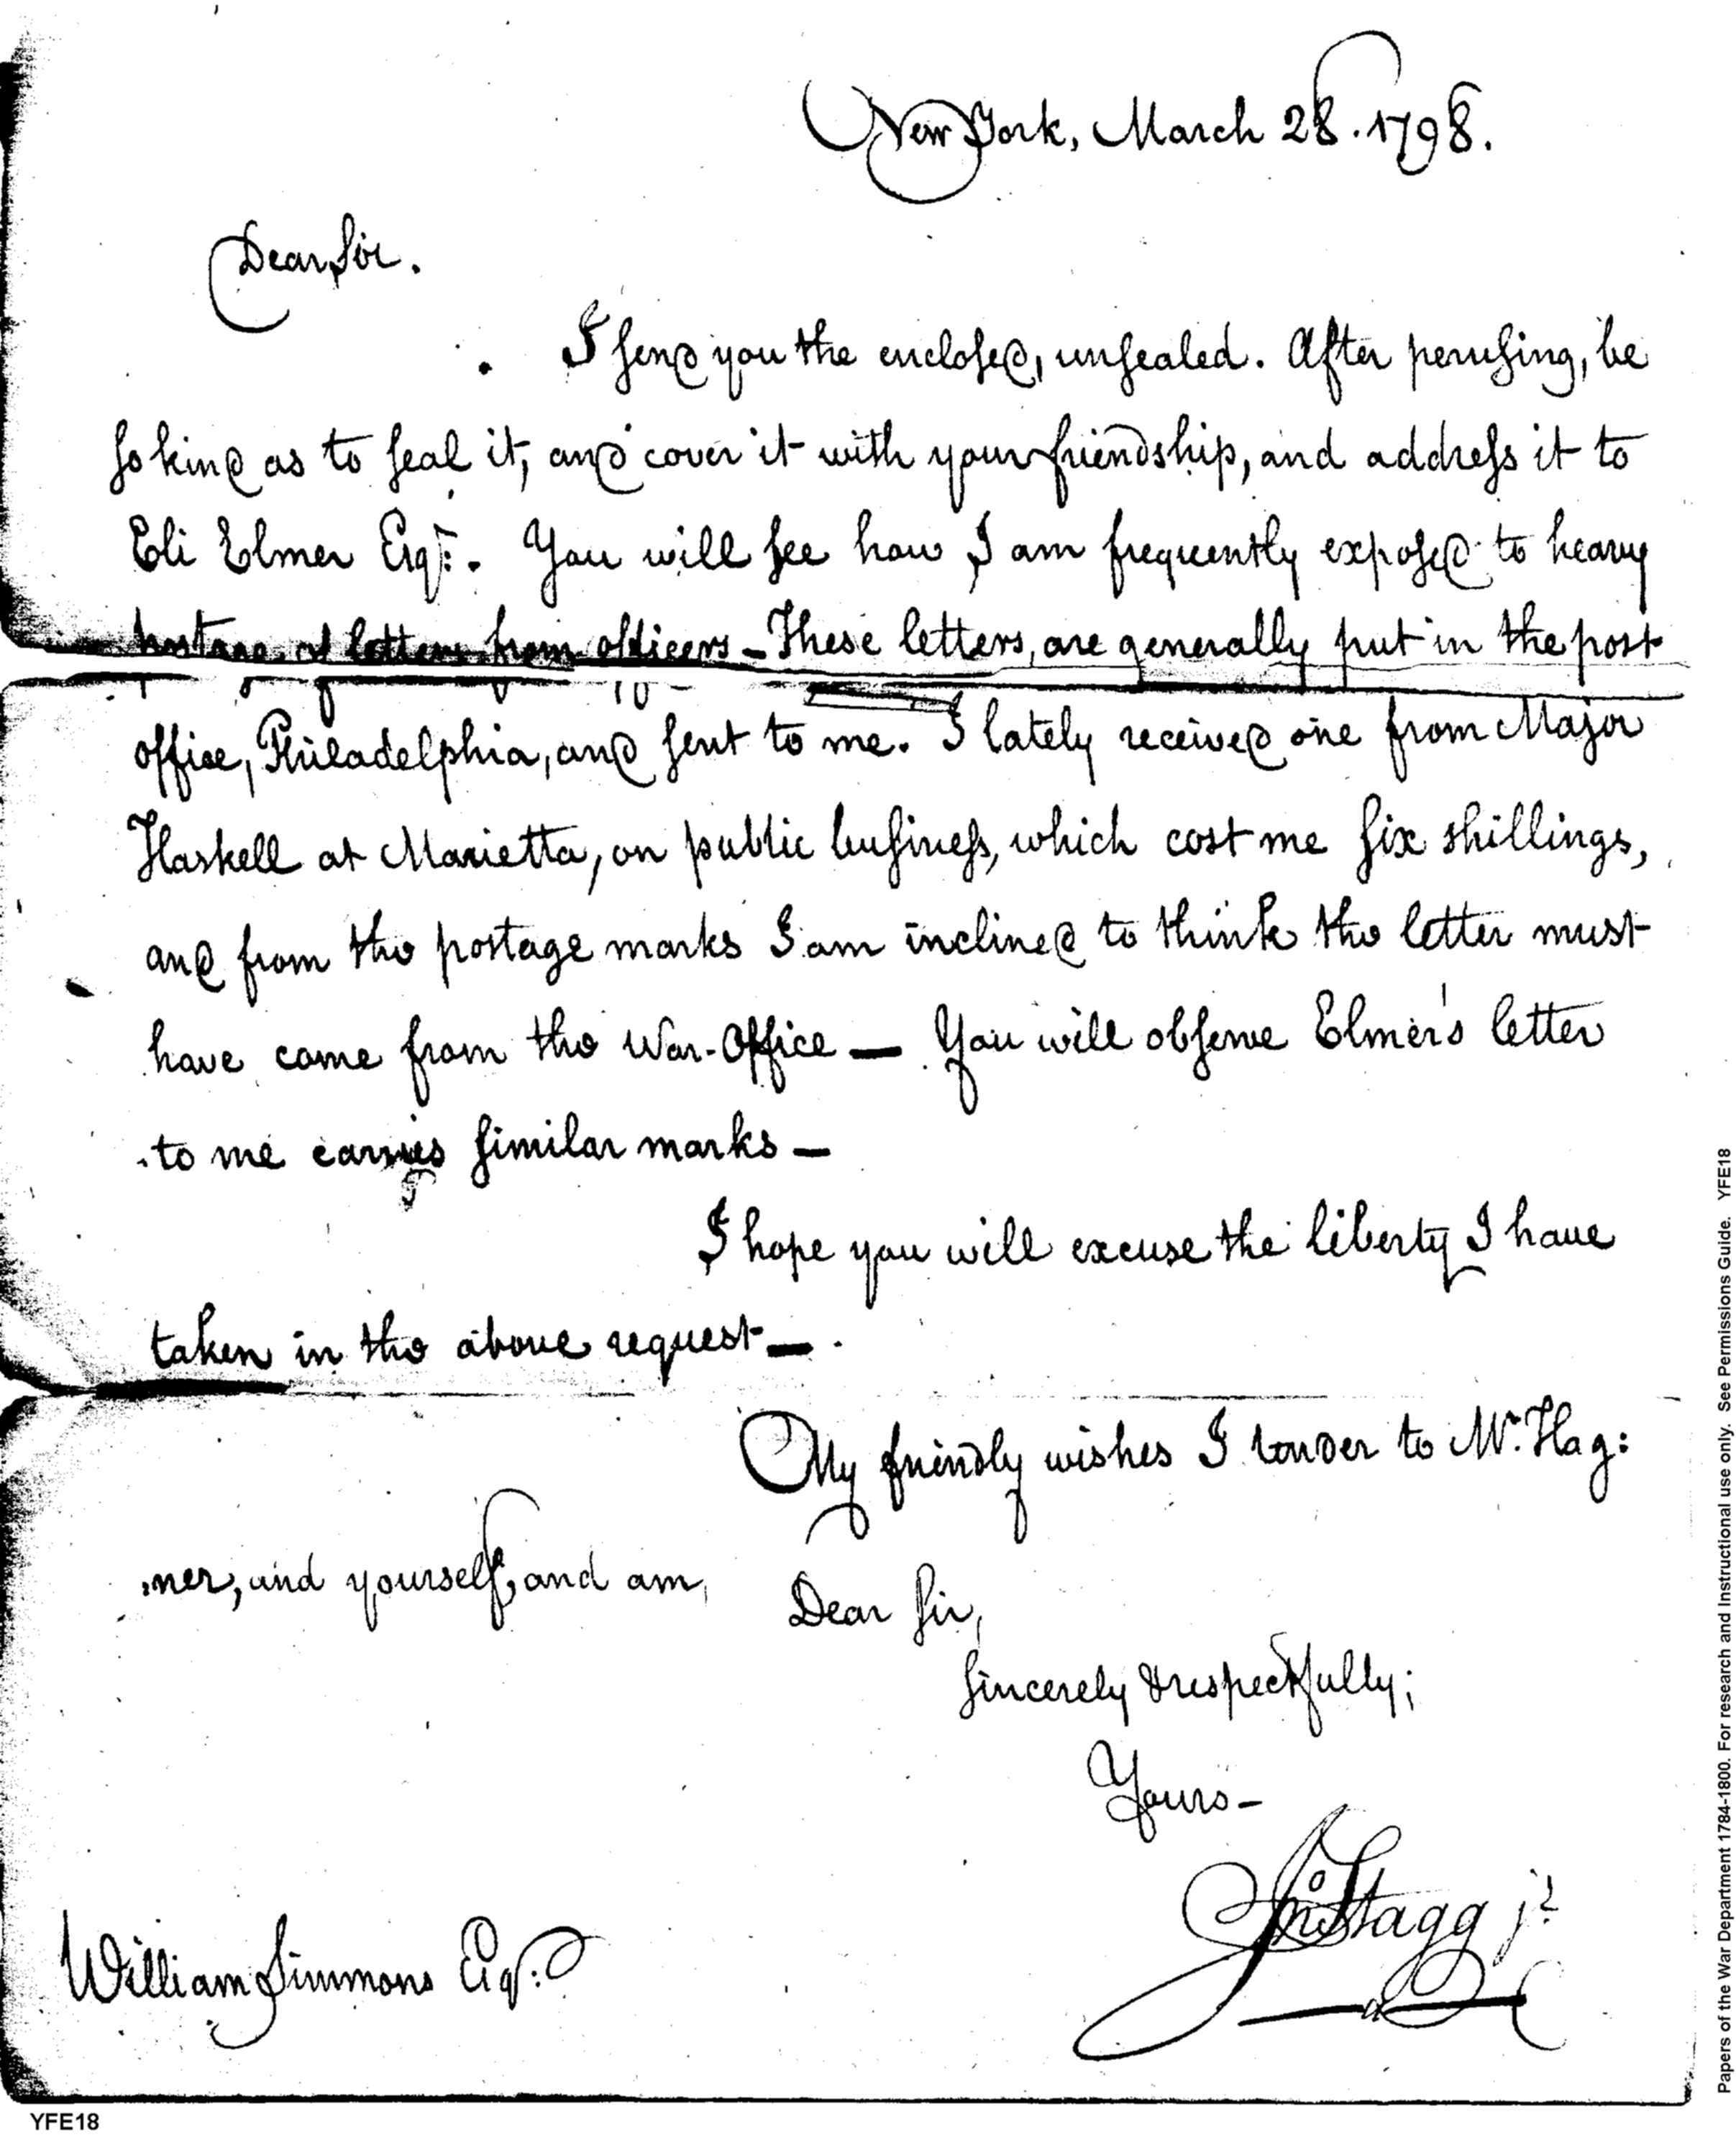 New York, March 28. 1798.
Dear Sir.
I send you the enclosed, unsealed. After perusing, be
so kind as to seal it, and cover it with your friendship, and address it to
Eli Elmer Esqr. You will see how I am frequently exposed to heavy
postage of letters from officers — These letters, are generally put in the post
office, Philadelphia, and sent to me. I lately received one from Major
Haskell at Marietta, on public business, which cost me six shillings,
and from the postage marks I am inclined to think the letter must
have come from the War-Office — You will observe Elmer's letter
to me carries similar marks —
I hope you will excuse the liberty I have
taken in the above request — .
My friendly wishes I tender to Mr. Hag:
:ner, and yourself, and am,
Dear Sir,
Sincerely & respectfully;
Yours —
Jno Stagg jr.
William Simmons Esqr:
YFE18
Papers of the War Department 1784-1800. For research and Instructional use only. See Permissions Guide. YFE18